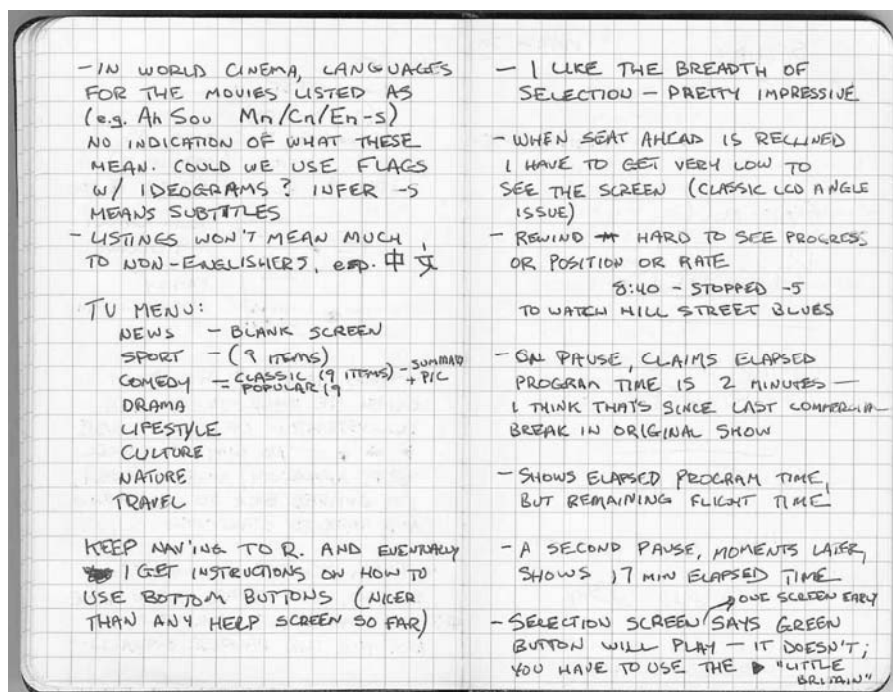 - IN WORLD CINEMA, LANGUAGES
FOR THE MOVIES LISTED AS
(e.g. Ah Sou Mn/Cn/En-s)
NO INDICATION OF WHAT THESE
MEAN. COULD WE USE FLAGS
W/ IDEOGRAMS? INFER -S
MEANS SUBTITLES
- LISTINGS WON'T MEAN MUCH
TO NON-ENGLISHERS, esp. 中文
TV MENU:
NEWS - BLANK SCREEN
SPORT - (9 ITEMS)
COMEDY = CLASSIC (9 ITEMS) - SUMMARY
POPULAR 19 + PIC
DRAMA
LIFESTYLE
CULTURE
NATURE
TRAVEL
KEEP NAV'ING TO R. AND EVENTUALLY
I GET INSTRUCTIONS ON HOW TO
USE BOTTOM BUTTONS (NICER
THAN ANY HELP SCREEN SO FAR)
- I LIKE THE BREADTH OF
SELECTION - PRETTY IMPRESSIVE
- WHEN SEAT AHEAD IS RECLINED
I HAVE TO GET VERY LOW TO
SEE THE SCREEN (CLASSIC LCD ANGLE
ISSUE)
- REWIND HARD TO SEE PROGRESS
OR POSITION OR RATE
8:40 - STOPPED -5
TO WATCH HILL STREET BLUES
- ON PAUSE, CLAIMS ELAPSED
PROGRAM TIME IS 2 MINUTES -
I THINK THAT'S SINCE LAST COMMERCIAL
BREAK IN ORIGINAL SHOW
- SHOWS ELAPSED PROGRAM TIME,
BUT REMAINING FLIGHT TIME
- A SECOND PAUSE, MOMENTS LATER,
SHOWS 17 MIN ELAPSED TIME
→ ONE SCREEN EARLY
- SELECTION SCREEN SAYS GREEN
BUTTON WILL PLAY - IT DOESN'T;
YOU HAVE TO USE THE ▶ "LITTLE
BRITAIN"